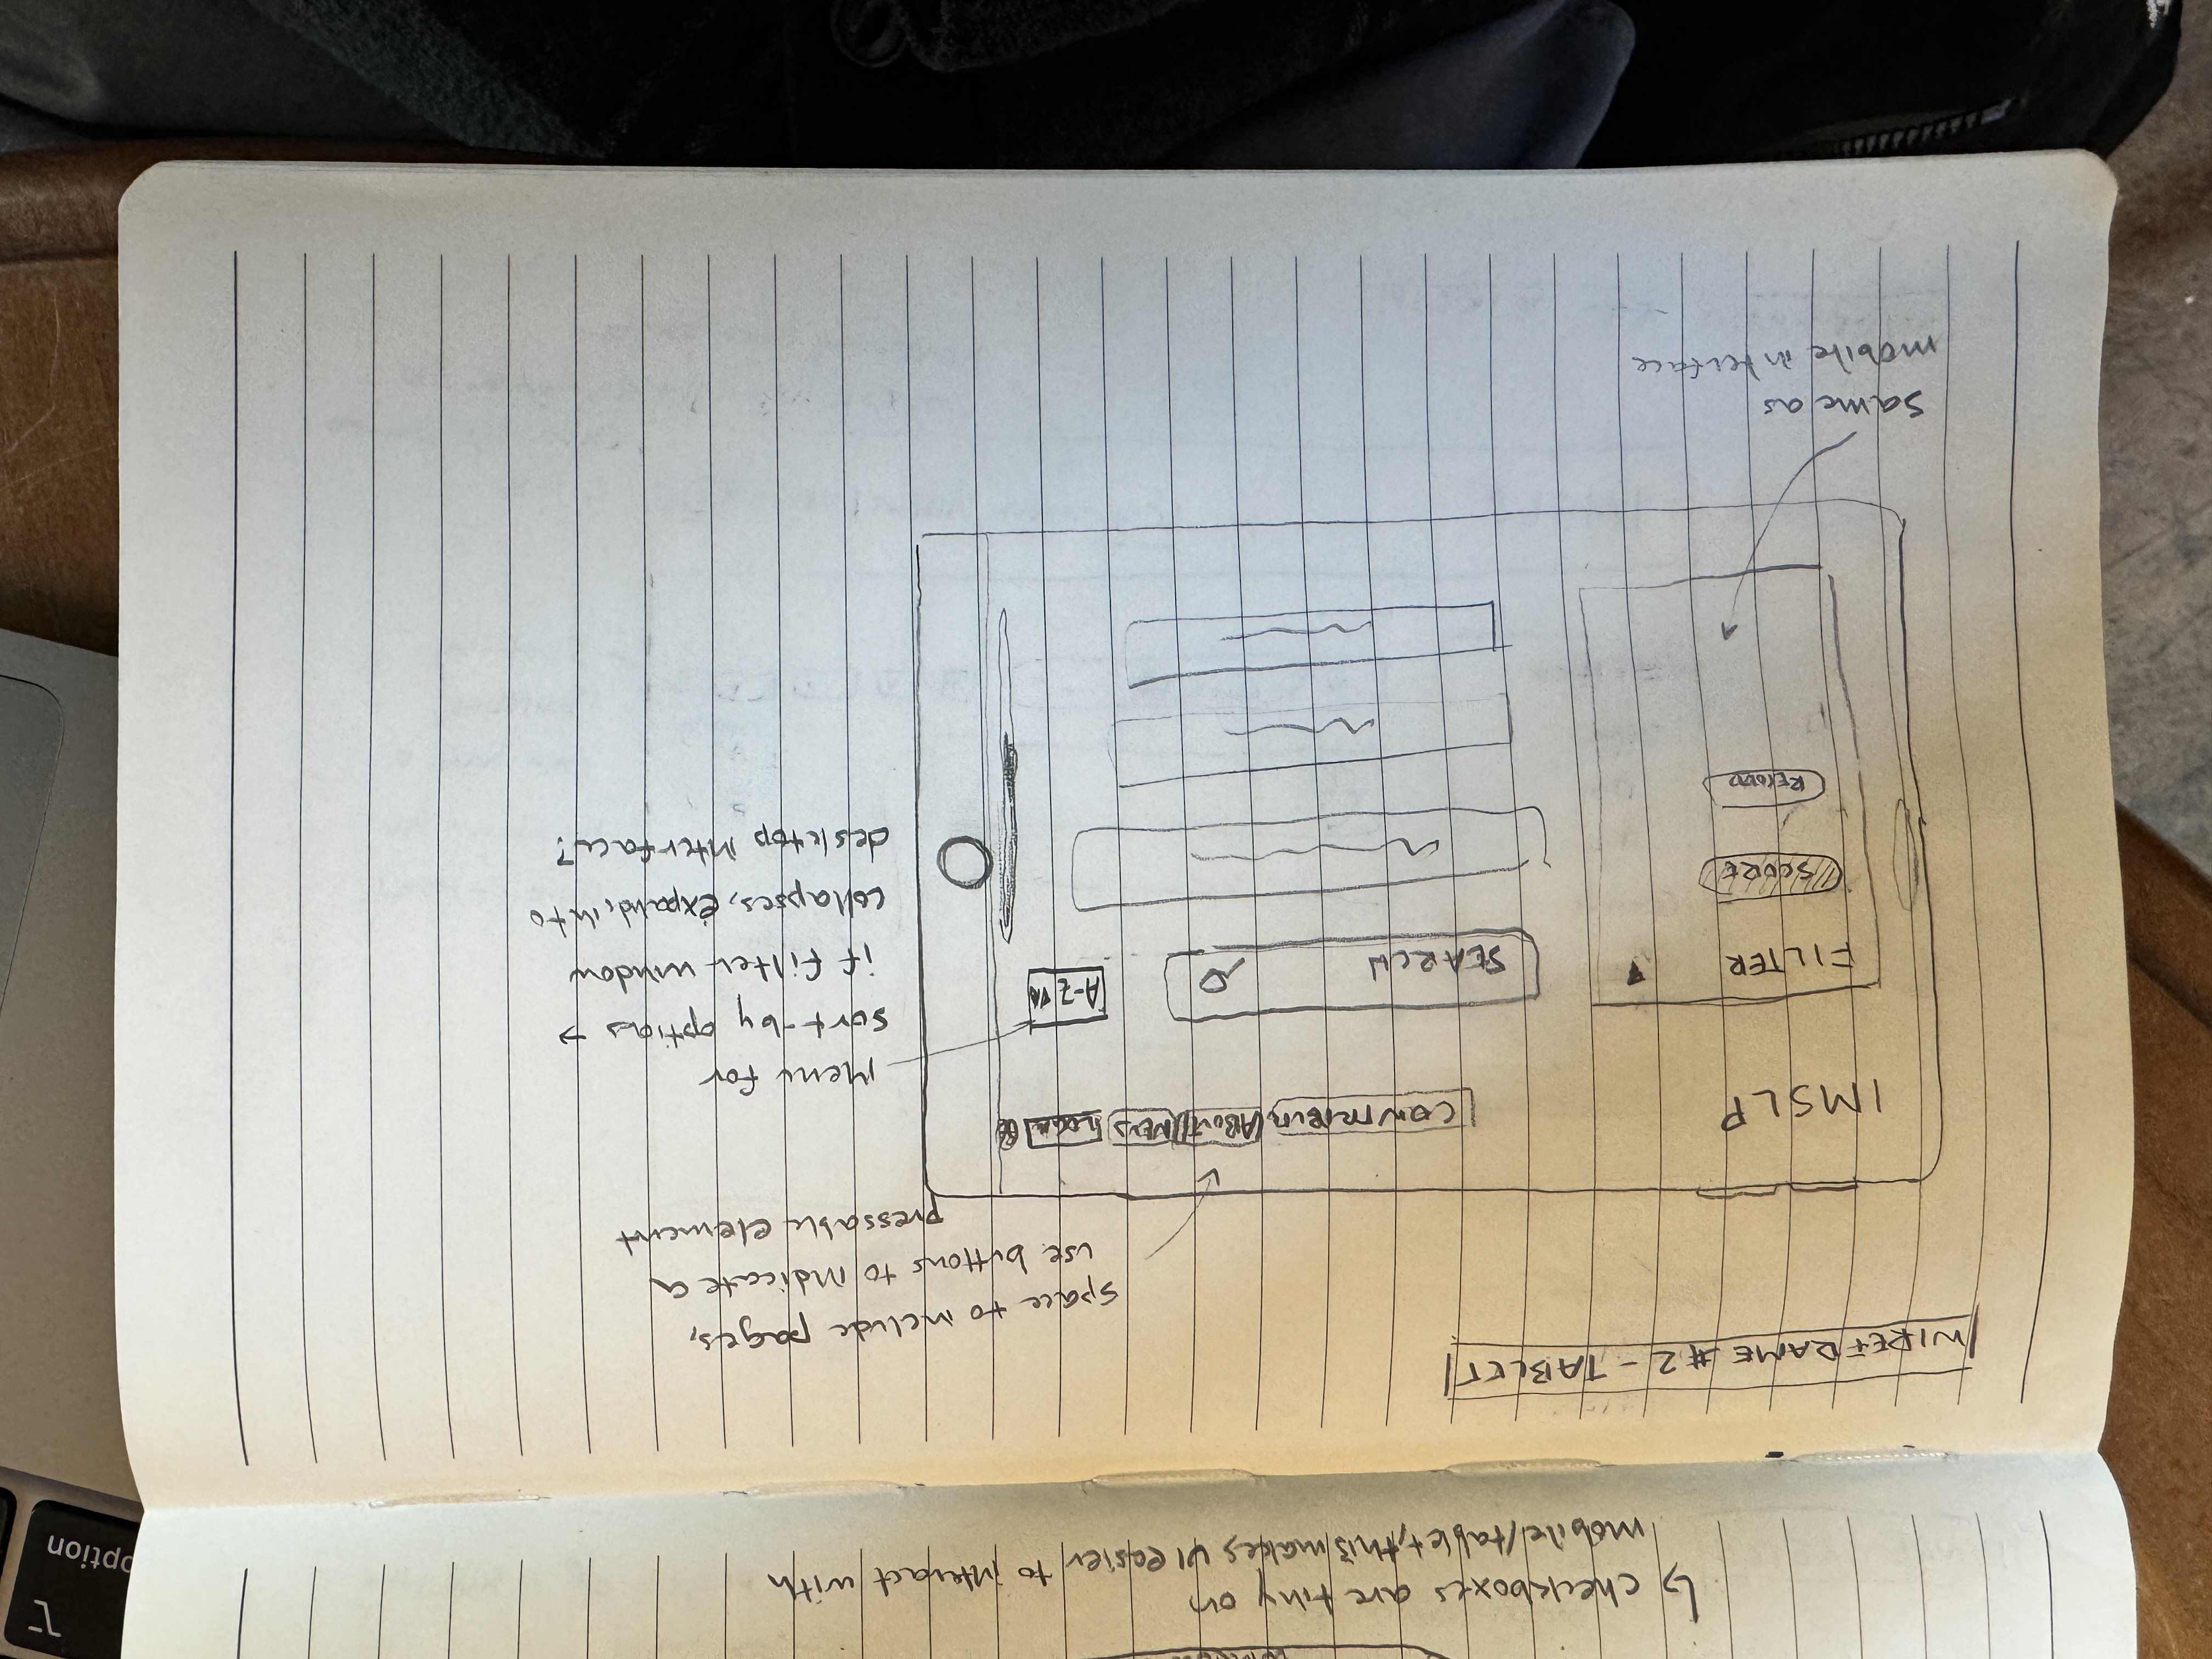 option
↳ checkboxes are tiny on
mobile/tablet, this makes UI easier to interact with
WIREFRAME #2 - TABLET
space to include pages,
use buttons to indicate a
pressable element
IMSLP
CONTRIBUTE
ABOUT
NEWS
LOGIN
Menu for
sort-by options →
if filter window
collapses, expand into
desktop interface?
FILTER ▼
SEARCH
A-Z
SCORE
RECORD
same as
mobile interface